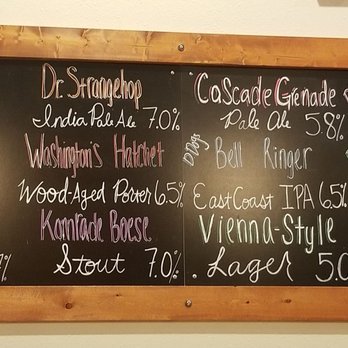 Dr. Strangehop
India Pale Ale 7.0%
Washington's Hatchet
Wood-Aged Porter 6.5%
Komrade Boese
Stout 7.0%
Cascade Grenade
Pale Ale 5.8%
Bell Ringer
East Coast IPA 6.5%
Vienna-Style
Lager 5.0